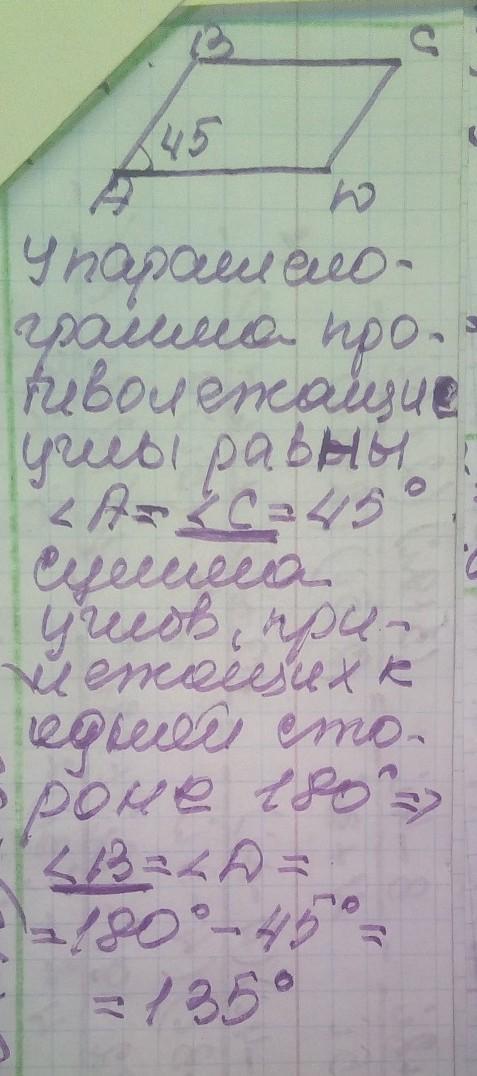 B C
45
A D
У параллело-
грамма про-
тиволежащие
углы равны
∠A = ∠C = 45°
Сумма
углов, при-
лежащих к
одной сто-
роне 180° ⇒
∠B = ∠D =
= 180° - 45° =
= 135°